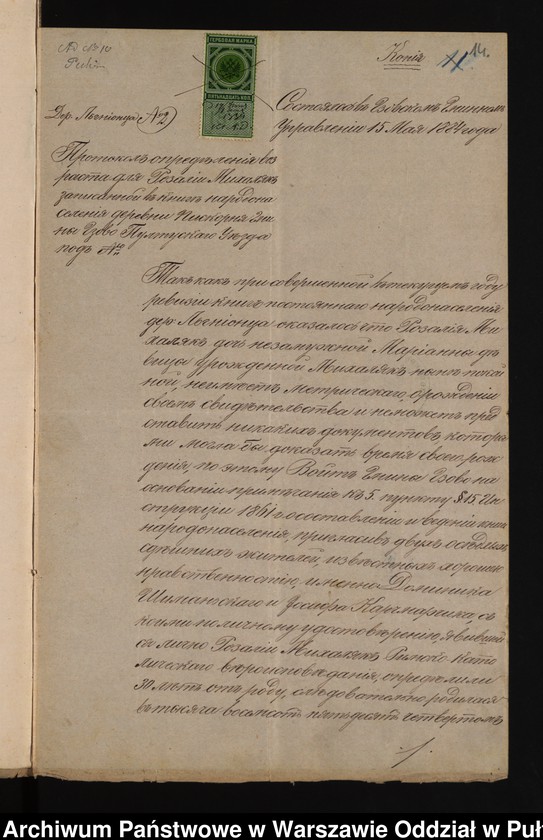 Копія
14.
ГЕРБОВАЯ МАРКА
ПЯТЬНАДЦАТЬ КОП.
Дер. Льспіонца № 2)
Состоялось въ Гзовскомъ Гминномъ
Управленіи 15 Мая 1884 года
Протоколъ опредѣленія воз
раста для Розаліи Михалякъ
записанной въ книгѣ народона
селенія деревни Пискорня Гми
ны Гзово Пултускаго Уѣзда
подъ №
Такъ какъ при совершенной въ текущемъ году
ревизіи книгъ постояннаго народонаселенія
дер. Льспіонца оказалось что Розалія Ми
халякъ дочь незамужной Маріанны дѣ
вицы урожденной Михалякъ нынѣ покой
ной, неимѣетъ метрическаго, о рожденіи
своемъ свидѣтельства и неможетъ пред
ставить никакихъ документовъ, которы
ми могла бы доказать время своего рож
денія, по этому Войтъ Гмины Гзово на
основаніи примѣчанія къ 5. пункту § 15 Ин
струкціи 1861 г. о составленіи и веденіи книгъ
народонаселенія, пригласивъ двухъ осѣдлыхъ
здѣшнихъ жителей, извѣстныхъ хорошею
нравственностію, именно Доминика
Шиманскаго и Іосифа Карчмарчика, съ
коими по личному удостовѣренію, явившей
ся лично Розаліи Михалякъ Римско Като
лическаго вѣроисповѣданія, опредѣлили
30 лѣтъ отъ роду, слѣдовательно родилася
въ тысяга восемсотъ пятьдесятъ четвертомъ
Archiwum Państwowe w Warszawie Oddział w Puł